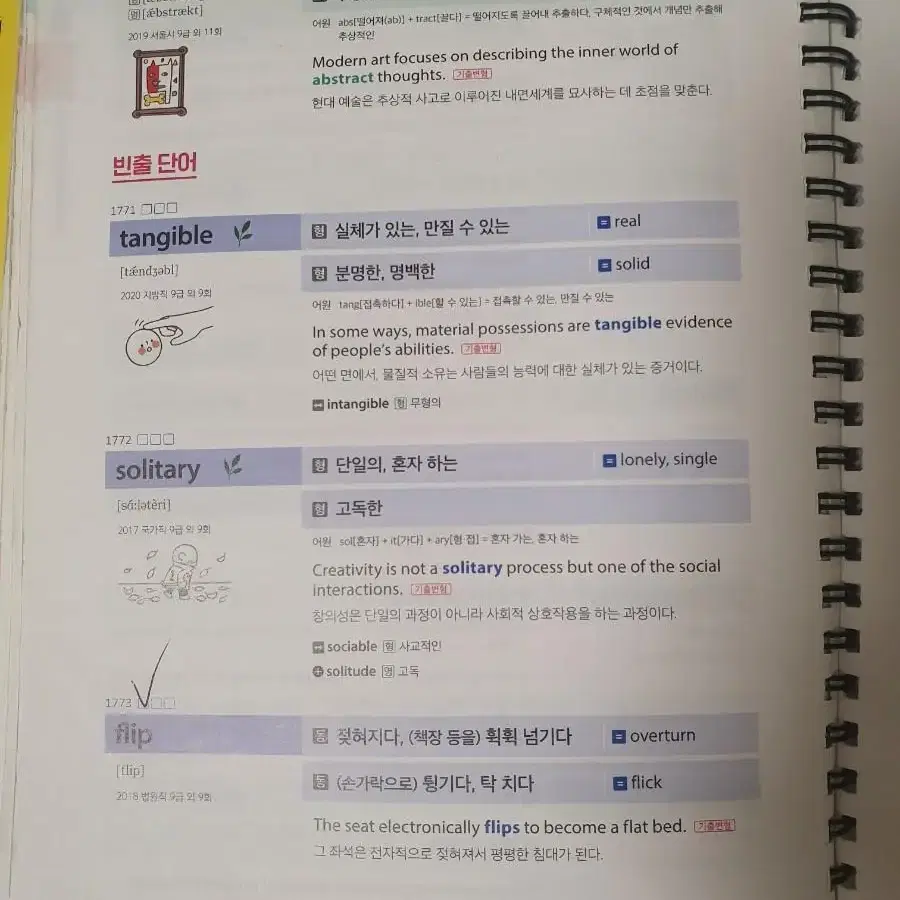 명 [ǽbstrækt]
2019 서울시 9급 외 11회
어원 abs[떨어져(ab)] + tract[끌다] = 떨어지도록 끌어내 추출하다, 구체적인 것에서 개념만 추출해
추상적인
Modern art focuses on describing the inner world of
abstract thoughts. 기출변형
현대 예술은 추상적 사고로 이루어진 내면세계를 묘사하는 데 초점을 맞춘다.
빈출 단어
1771 □□□
tangible 형 실체가 있는, 만질 수 있는 = real
[tǽndʒəbl] 형 분명한, 명백한 = solid
2020 지방직 9급 외 9회
어원 tang[접촉하다] + ible[할 수 있는] = 접촉할 수 있는, 만질 수 있는
In some ways, material possessions are tangible evidence
of people's abilities. 기출변형
어떤 면에서, 물질적 소유는 사람들의 능력에 대한 실체가 있는 증거이다.
↔ intangible 형 무형의
1772 □□□
solitary 형 단일의, 혼자 하는 = lonely, single
[sɑ́:lətèri] 형 고독한
2017 국가직 9급 외 9회
어원 sol[혼자] + it[가다] + ary[형·접] = 혼자 가는, 혼자 하는
Creativity is not a solitary process but one of the social
interactions. 기출변형
창의성은 단일의 과정이 아니라 사회적 상호작용을 하는 과정이다.
↔ sociable 형 사교적인
+ solitude 명 고독
1773 □□□
flip 동 젖혀지다, (책장 등을) 휙휙 넘기다 = overturn
[flip] 동 (손가락으로) 튕기다, 탁 치다 = flick
2018 법원직 9급 외 9회
The seat electronically flips to become a flat bed. 기출변형
그 좌석은 전자적으로 젖혀져서 평평한 침대가 된다.